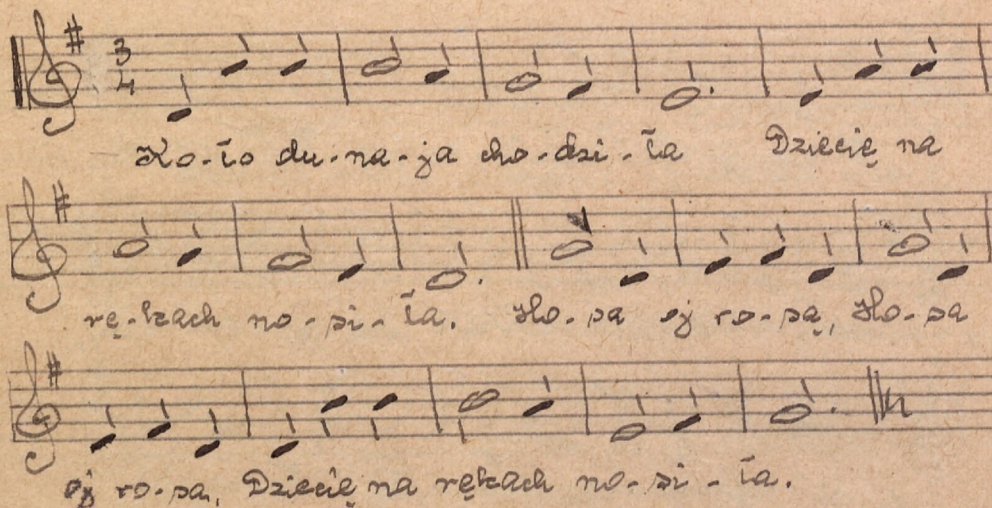 3
4
Ko-ło du-na-ja cho-dzi-ła Dziecię na
rę-kach no-si-ła. Ho-sa oj ro-są, Ho-sa
oj ro-są, Dziecię na rękach no-si-ła.